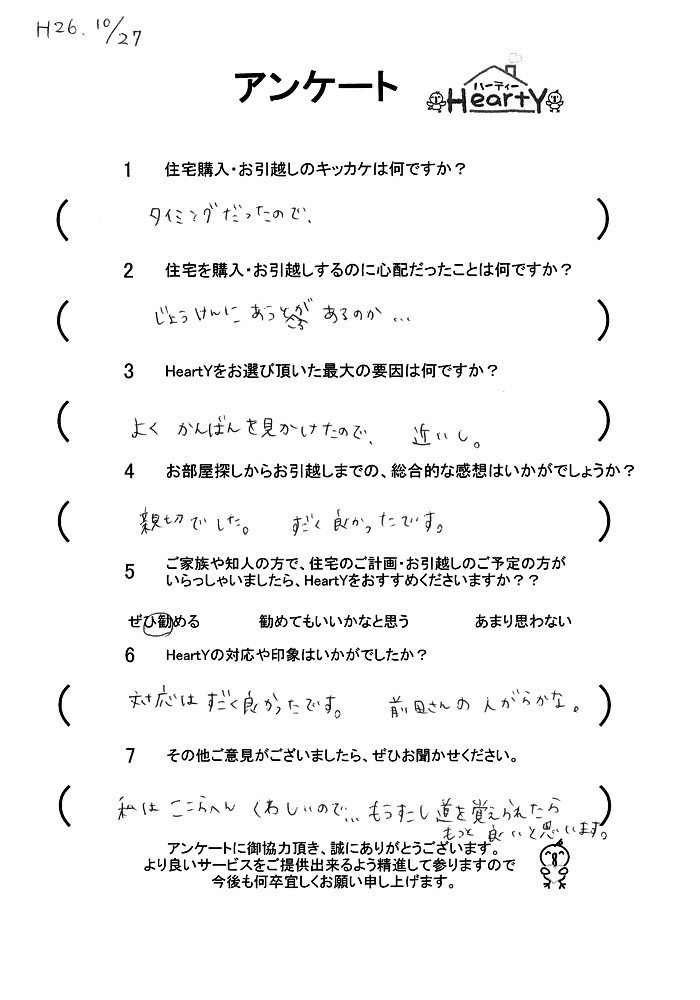 H26.10/27
アンケート
ハーティー
HeartY
1 住宅購入・お引越しのキッカケは何ですか？
(タイミングだったので、)
2 住宅を購入・お引越しするのに心配だったことは何ですか？
(じょうけんに あうところが あるのか…)
3 HeartYをお選び頂いた最大の要因は何ですか？
(よく かんばんを見かけたので、 近いし。)
4 お部屋探しからお引越しまでの、総合的な感想はいかがでしょうか？
(親切でした。 すごく良かったです。)
5 ご家族や知人の方で、住宅のご計画・お引越しのご予定の方が
いらっしゃいましたら、HeartYをおすすめくださいますか？？
ぜひ勧める 勧めてもいいかなと思う あまり思わない
6 HeartYの対応や印象はいかがでしたか？
(対応は すごく良かったです。 前田さんの人がらかな。)
7 その他ご意見がございましたら、ぜひお聞かせください。
(私は ここらへん くわしいので… もうすこし 道を覚えられたら
もっと 良いと思います。)
アンケートに御協力頂き、誠にありがとうございます。
より良いサービスをご提供出来るよう精進して参りますので
今後も何卒宜しくお願い申し上げます。